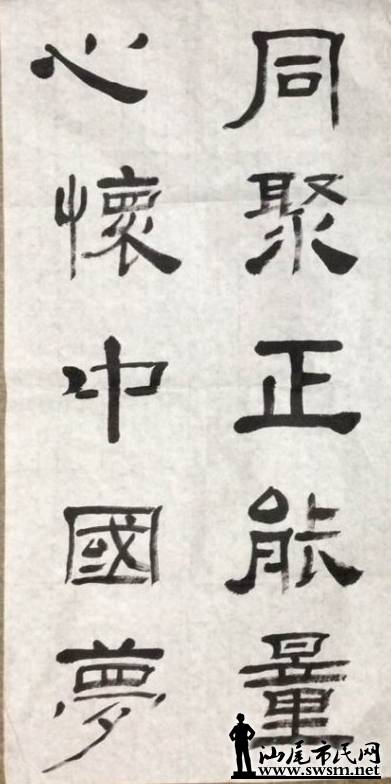 同聚正能量
心懷中國夢
汕尾市民网
www.swsm.net